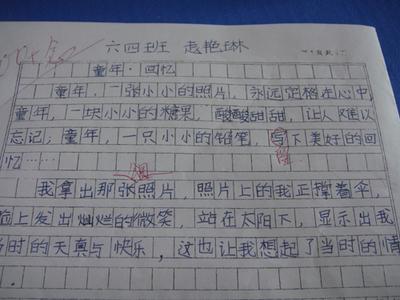 六四班 赵艳琳
童年·回忆
童年，一张小小的照片，永远定格在心中，
童年，一块小小的糖果，酸酸甜甜，让人难以
忘记；童年，一只小小的铅笔，写下美好的回
忆……
我拿出那张照片，照片上的我正撑着伞，
脸上发出灿烂的微笑，站在太阳下，显示出我
当时的天真与快乐，这也让我想起了当时的情